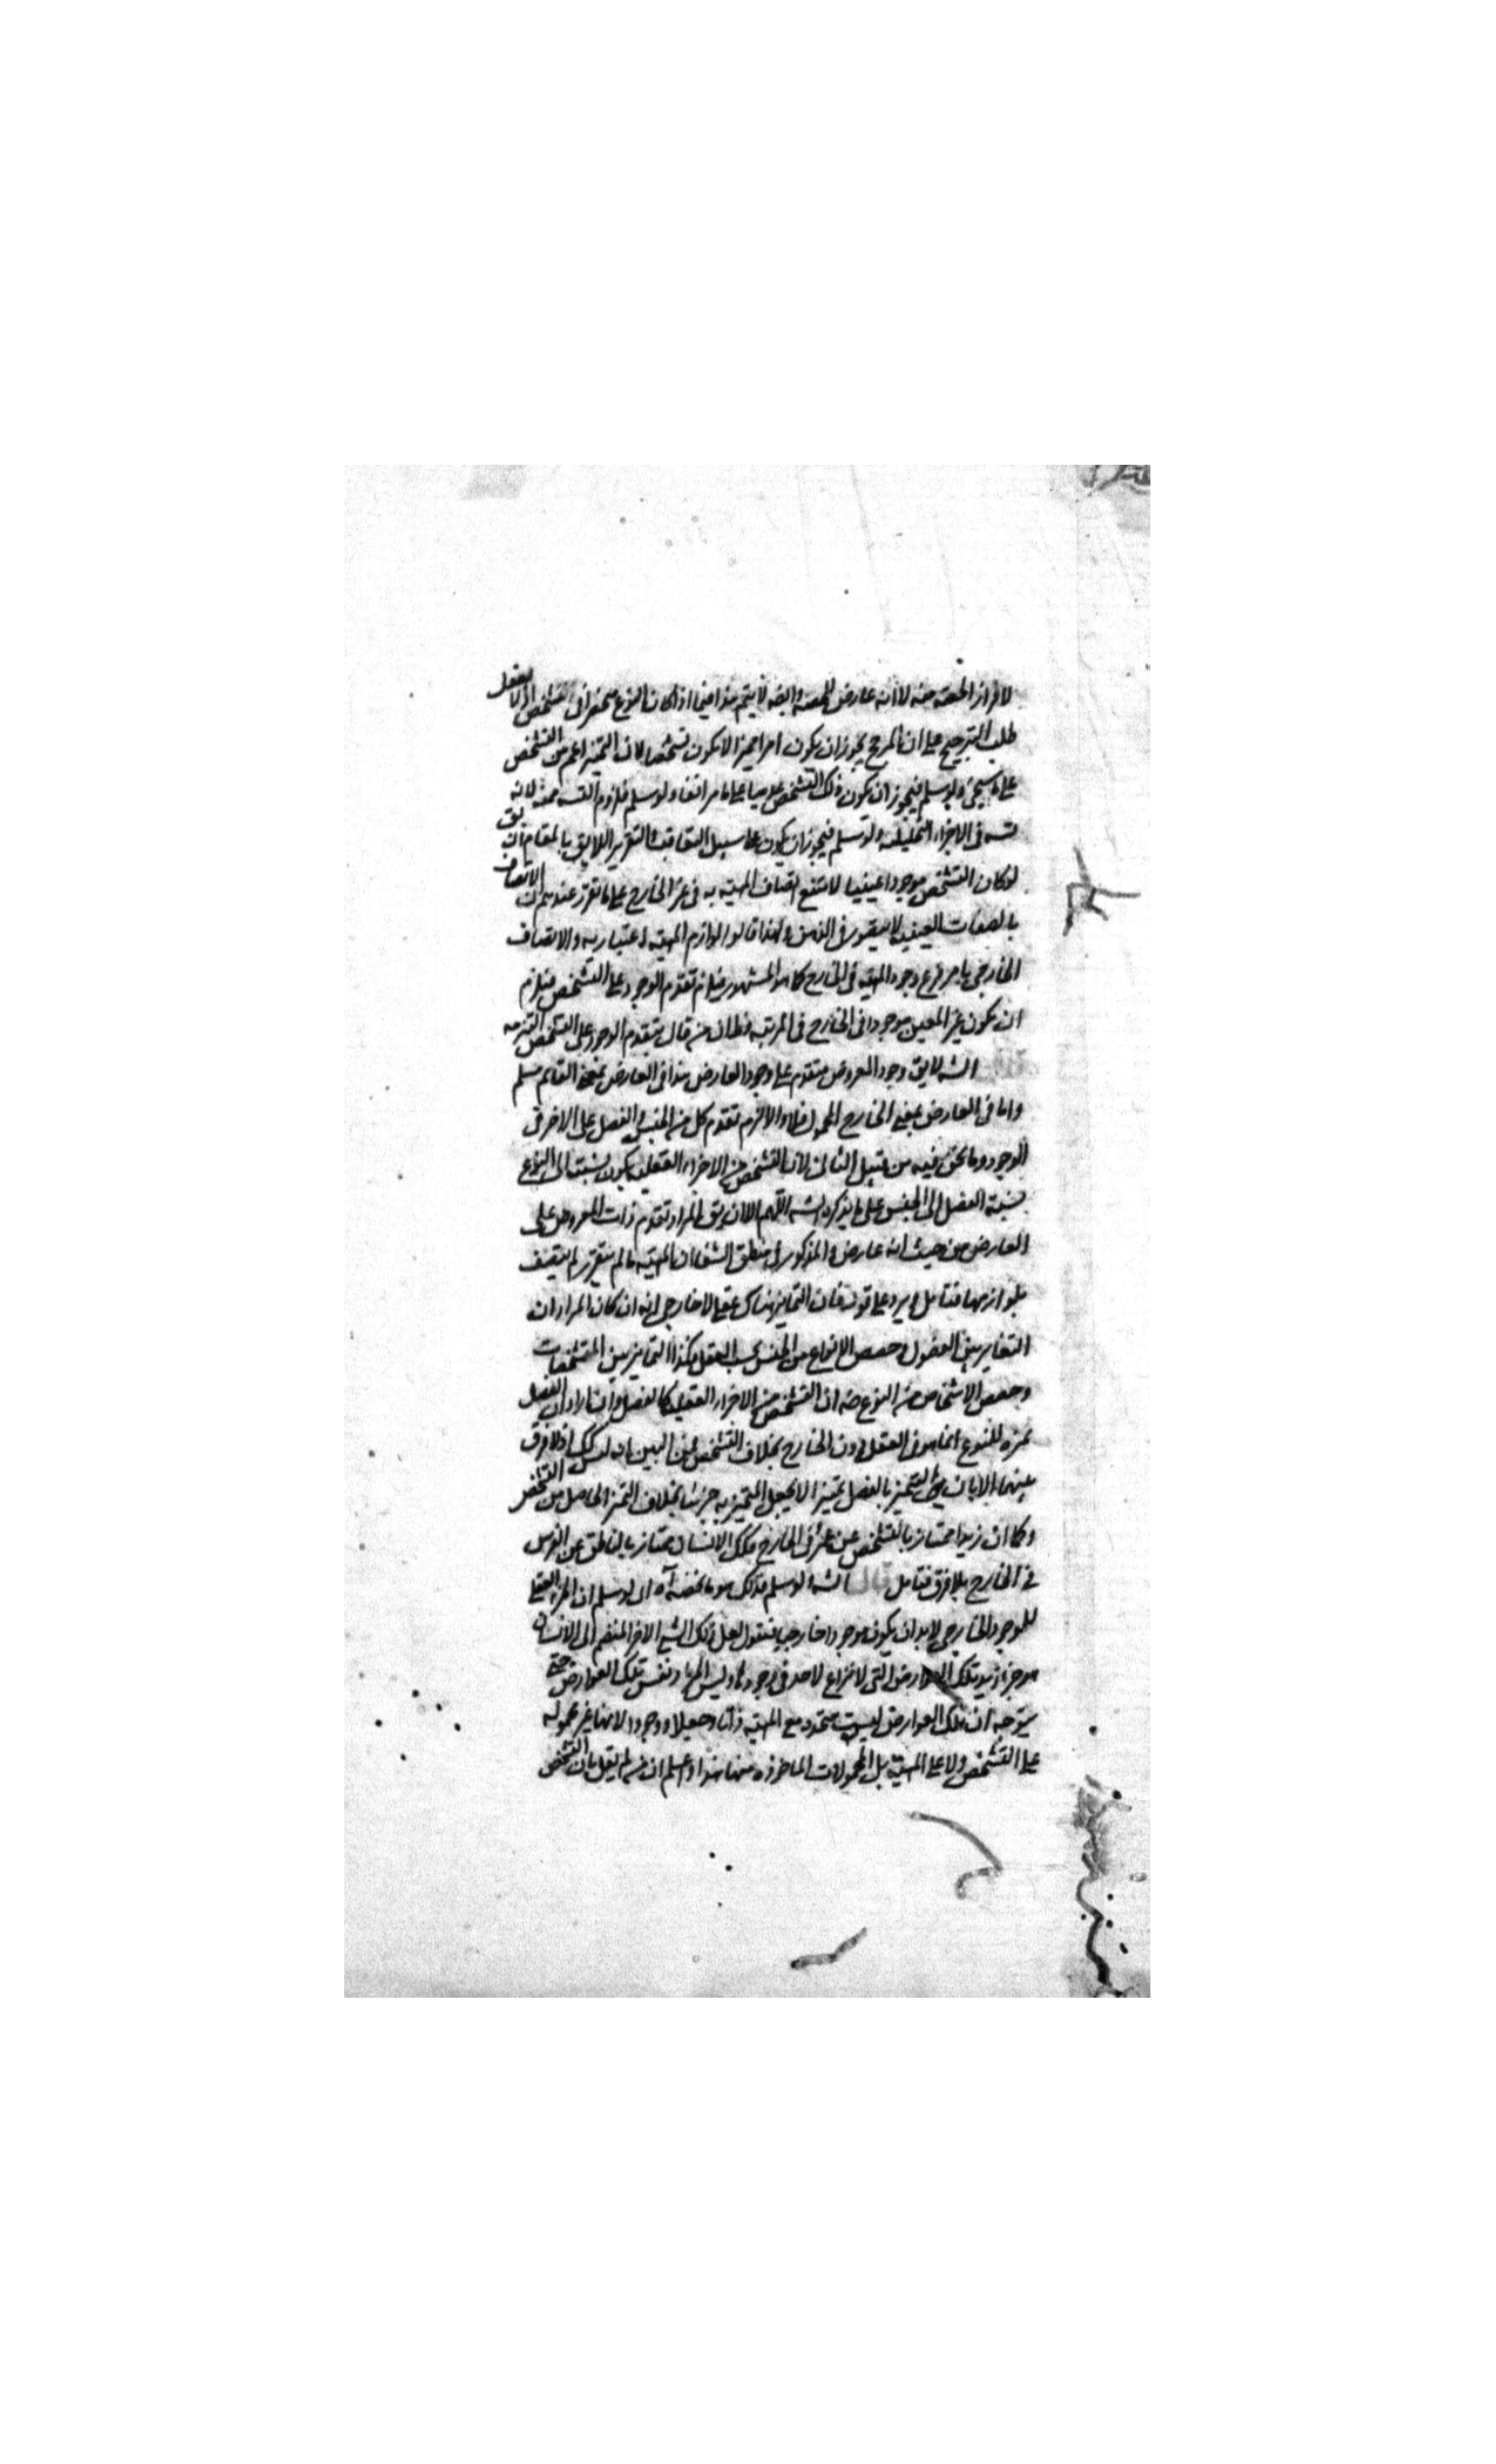 لافراز الحصة منه لا انه عارض للحصة وايضه لا يتم هذا فيما اذا كان النوع منحصرا فى الشخص اذ لا يعقل
طلب الترجيح على ان المرجح يجوز ان يكون امرا مميزا لا يكون تشخصا لان التميز اعم من التشخص
على ما سيجئ ولو سلم فيجوز ان يكون ذلك التشخص عدميا على ما مر انفا ولو سلم فلزوم التسه ممنه لانه
تسه فى الاجزاء التحليليه ولو سلم فيجوز ان يكون على سبيل التعاقب والتقرير اللايق بالمقام ان يق
لو كان التشخص موجودا عينيا لامتنع اتصاف المهية به فى غير الخارج على ما تقرر عندهم ان الاتصاف
بالصفات العينية لا يتصور فى الذهن ولهذا قالوا لوازم المهية اعتباريه والاتصاف
الخارجى بامر فرع وجود المهية فى الخارج كما هو المشهور فيلزم تقدم الوجود على التشخص فيلزم
ان يكون غير المعين موجودا فى الخارج فى المرتبة وظ ان من قال بتقدم الوجود على التشخص التزمه
الشه لا يق وجود المعروض متقدم على وجود العارض هذا فى العارض بمعنى القائم مسلم
واما فى العارض بمعنى الخارج المحمول فلا والا لزم تقدم كل من الجنس والفصل على الاخر فى
الوجود وما نحن فيه من قبيل الثانى لان التشخص من الاجزاء العقليه يكون نسبته الى النوع
نسبة الفصل الى الجنس على ما يذكره الشه اللهم الا ان يق المراد تقدم ذات المعروض على
العارض من حيث انه عارض والمذكور فى منطق الشفا ان المهية ما لم يتقرر لم يتصف
بلوازمها فتامل يرد على قوله فان التمايز هناك عقلى لا خارجى انه ان كان المراد ان
التغاير بين الفصول وحصص الانواع من الجنس بحسب العقل فكذا التمايز بين التشخصات
وحصص الاشخاص من النوع ضه ان التشخص من الاجزاء العقليه كالفصل وان اراد ان الفصل
تميزه للنوع انما هو فى العقل دون الخارج بخلاف التشخص فمن البين انه ليس كك اذ لا فرق
بينهما الا بان التميز بالفصل تميز الا يجعل المتميز به جزئيا بخلاف التميز الحاصل من التشخص
وكما ان زيدا ممتاز بالتشخص عن عمرو فى الخارج فكك الانسان ممتاز بالناطق عن الفرس
فى الخارج بلا فرق فتامل قال الشه لو سلم فذلك هو ما تحصه آه اى لو سلم ان الجزء العقلى
للموجود الخارجى لا بد ان يكون موجودا خارجيا فنقول لعل ذلك الشئ الاخر المنضم الى الانسان
هو جزء زيد تلك العوارض التى لا نزاع لاحد فى وجودها وليس المراد نفس تلك العوارض حتى
يتوجه ان تلك العوارض ليست متحده مع المهية ذاتا وجعلا ووجودا لانها غير محموله
على التشخص ولا على المهية بل المحمولات الماخوذه منها هذا واعلم ان من لم يقل بان التشخص